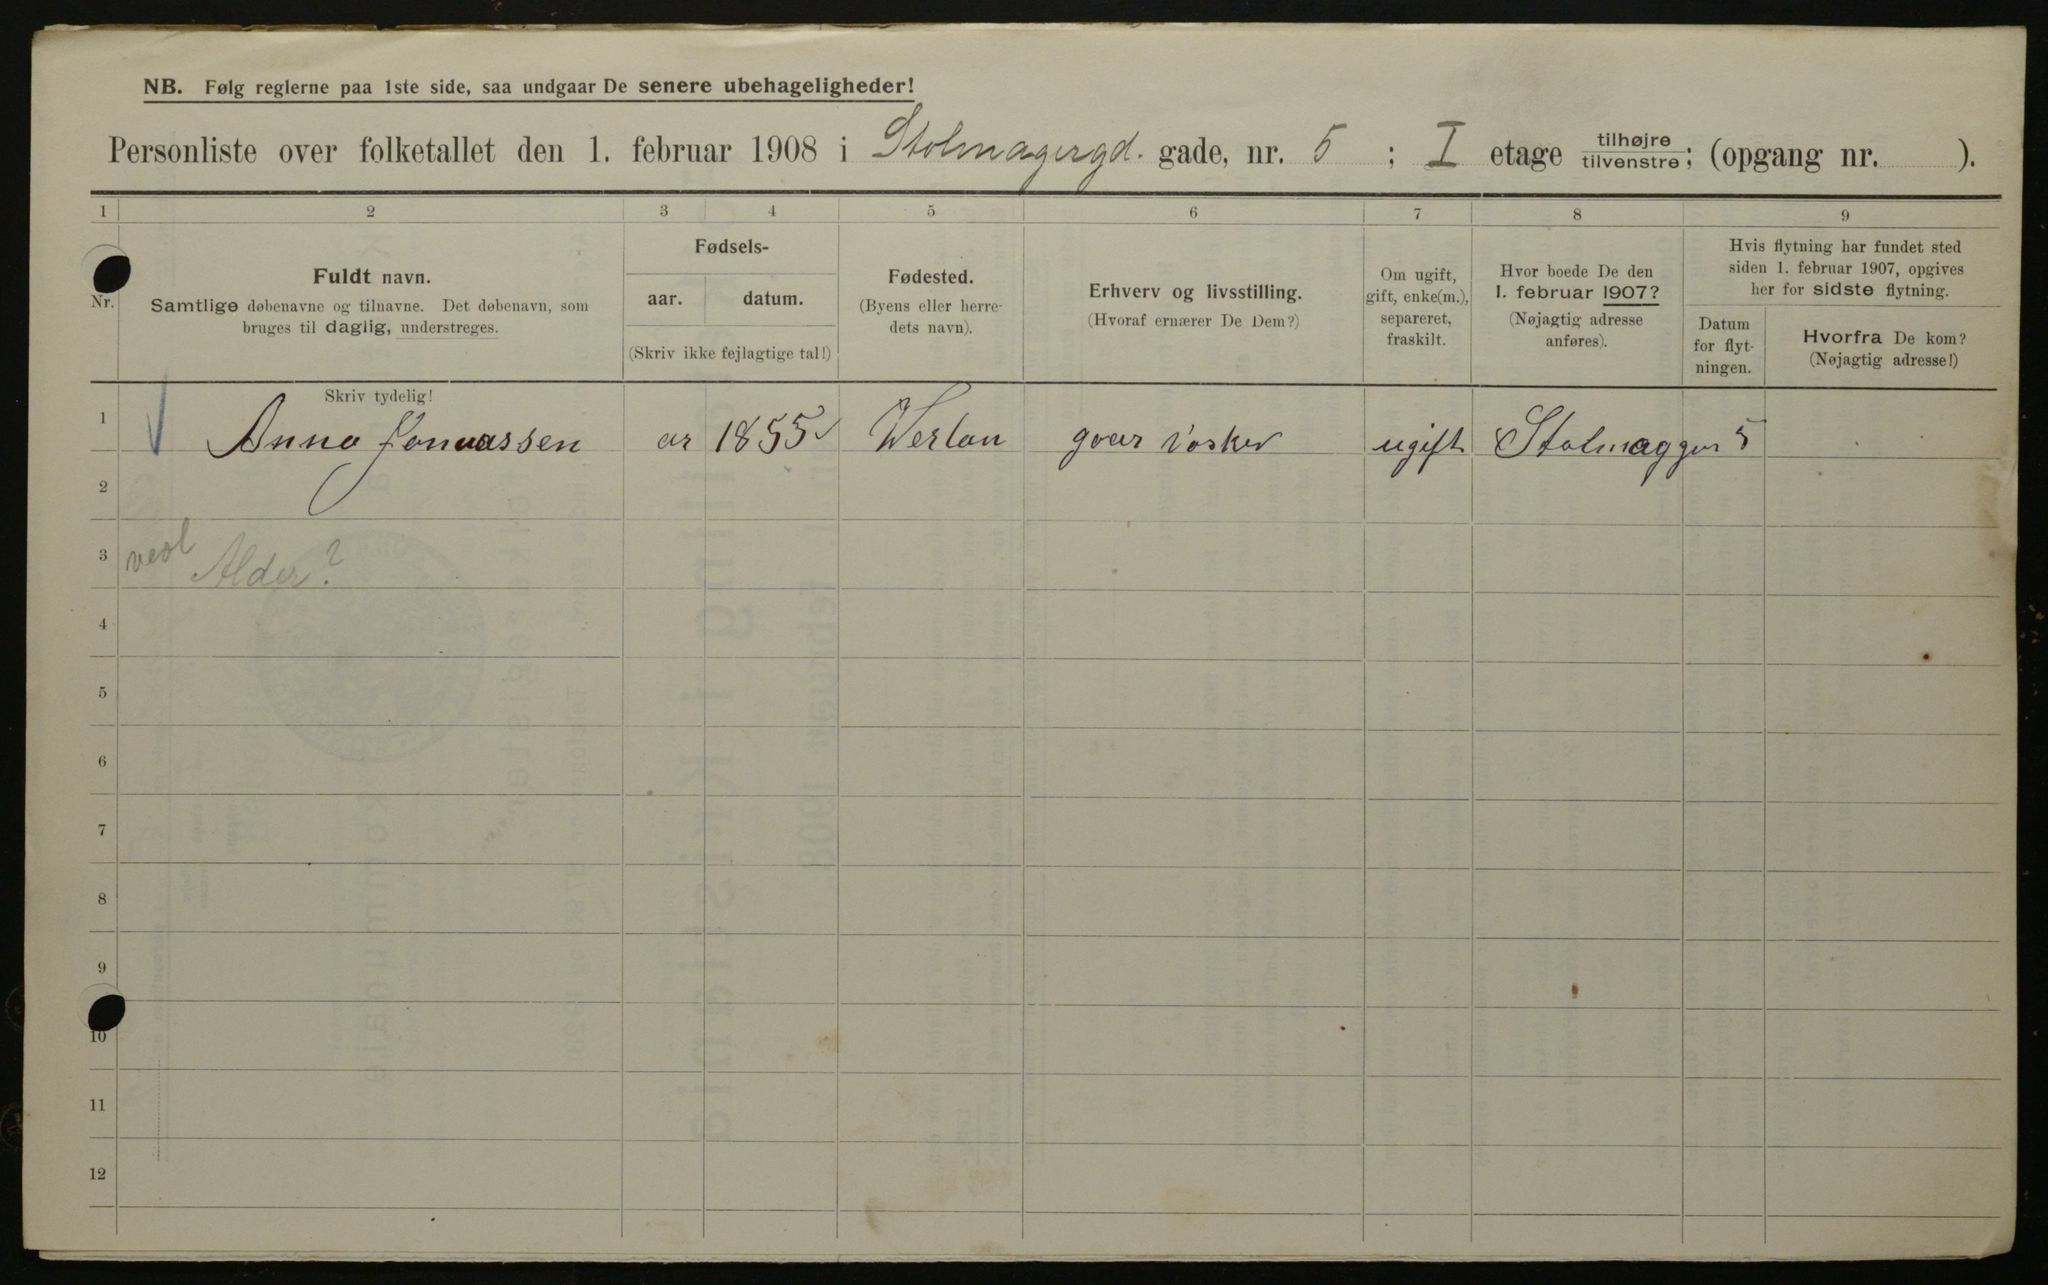 NB. Følg reglerne paa 1ste side, saa undgaar De senere ubehageligheder!
Personliste over folketallet den 1. februar 1908 i Stolmagergd. gade, nr. 5 ; I etage tilhøjre tilvenstre; (opgang nr. ).
1 2 3 4 5 6 7 8 9
Nr.
Fuldt navn.
Samtlige døbenavne og tilnavne. Det døbenavn, som
bruges til daglig, understreges.
Fødsels-
aar. datum.
(Skriv ikke fejlagtige tal!)
Fødested.
(Byens eller herre-
dets navn).
Erhverv og livsstilling.
(Hvoraf ernærer De Dem?)
Om ugift,
gift, enke(m.),
separeret,
fraskilt.
Hvor boede De den
1. februar 1907?
(Nøjagtig adresse
anføres).
Hvis flytning har fundet sted
siden 1. februar 1907, opgives
her for sidste flytning.
Datum
for flyt-
ningen.
Hvorfra De kom?
(Nøjagtig adresse!)
Skriv tydelig!
1 Anna Jonvassen ar 1855 Werlan goar vosker ugift Stolmagger 5
2
3 Alder?
4
5
6
7
8
9
10
11
12